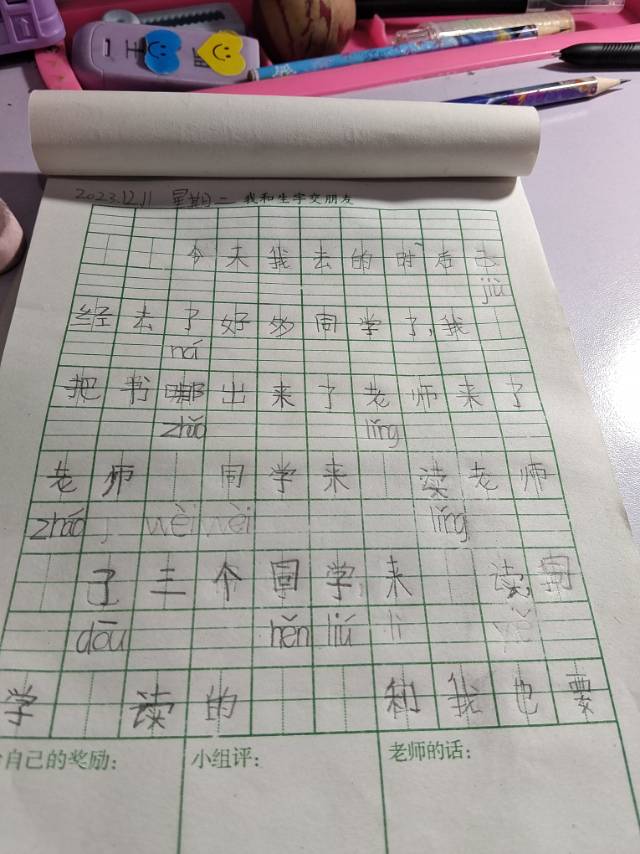 2023.12.11 星期二 我和生字交朋友
今天我去的时后已
jiù
经去了好多同学了,我
ná
把书哪出来了老师来了
zhǎo lǐng
老师 同学来 读老师
zhǎo lǐng
了三个同学来 读,同
dōu hěn liú lì
学 读的 和我也要
自己的奖励:
小组评:
老师的话: